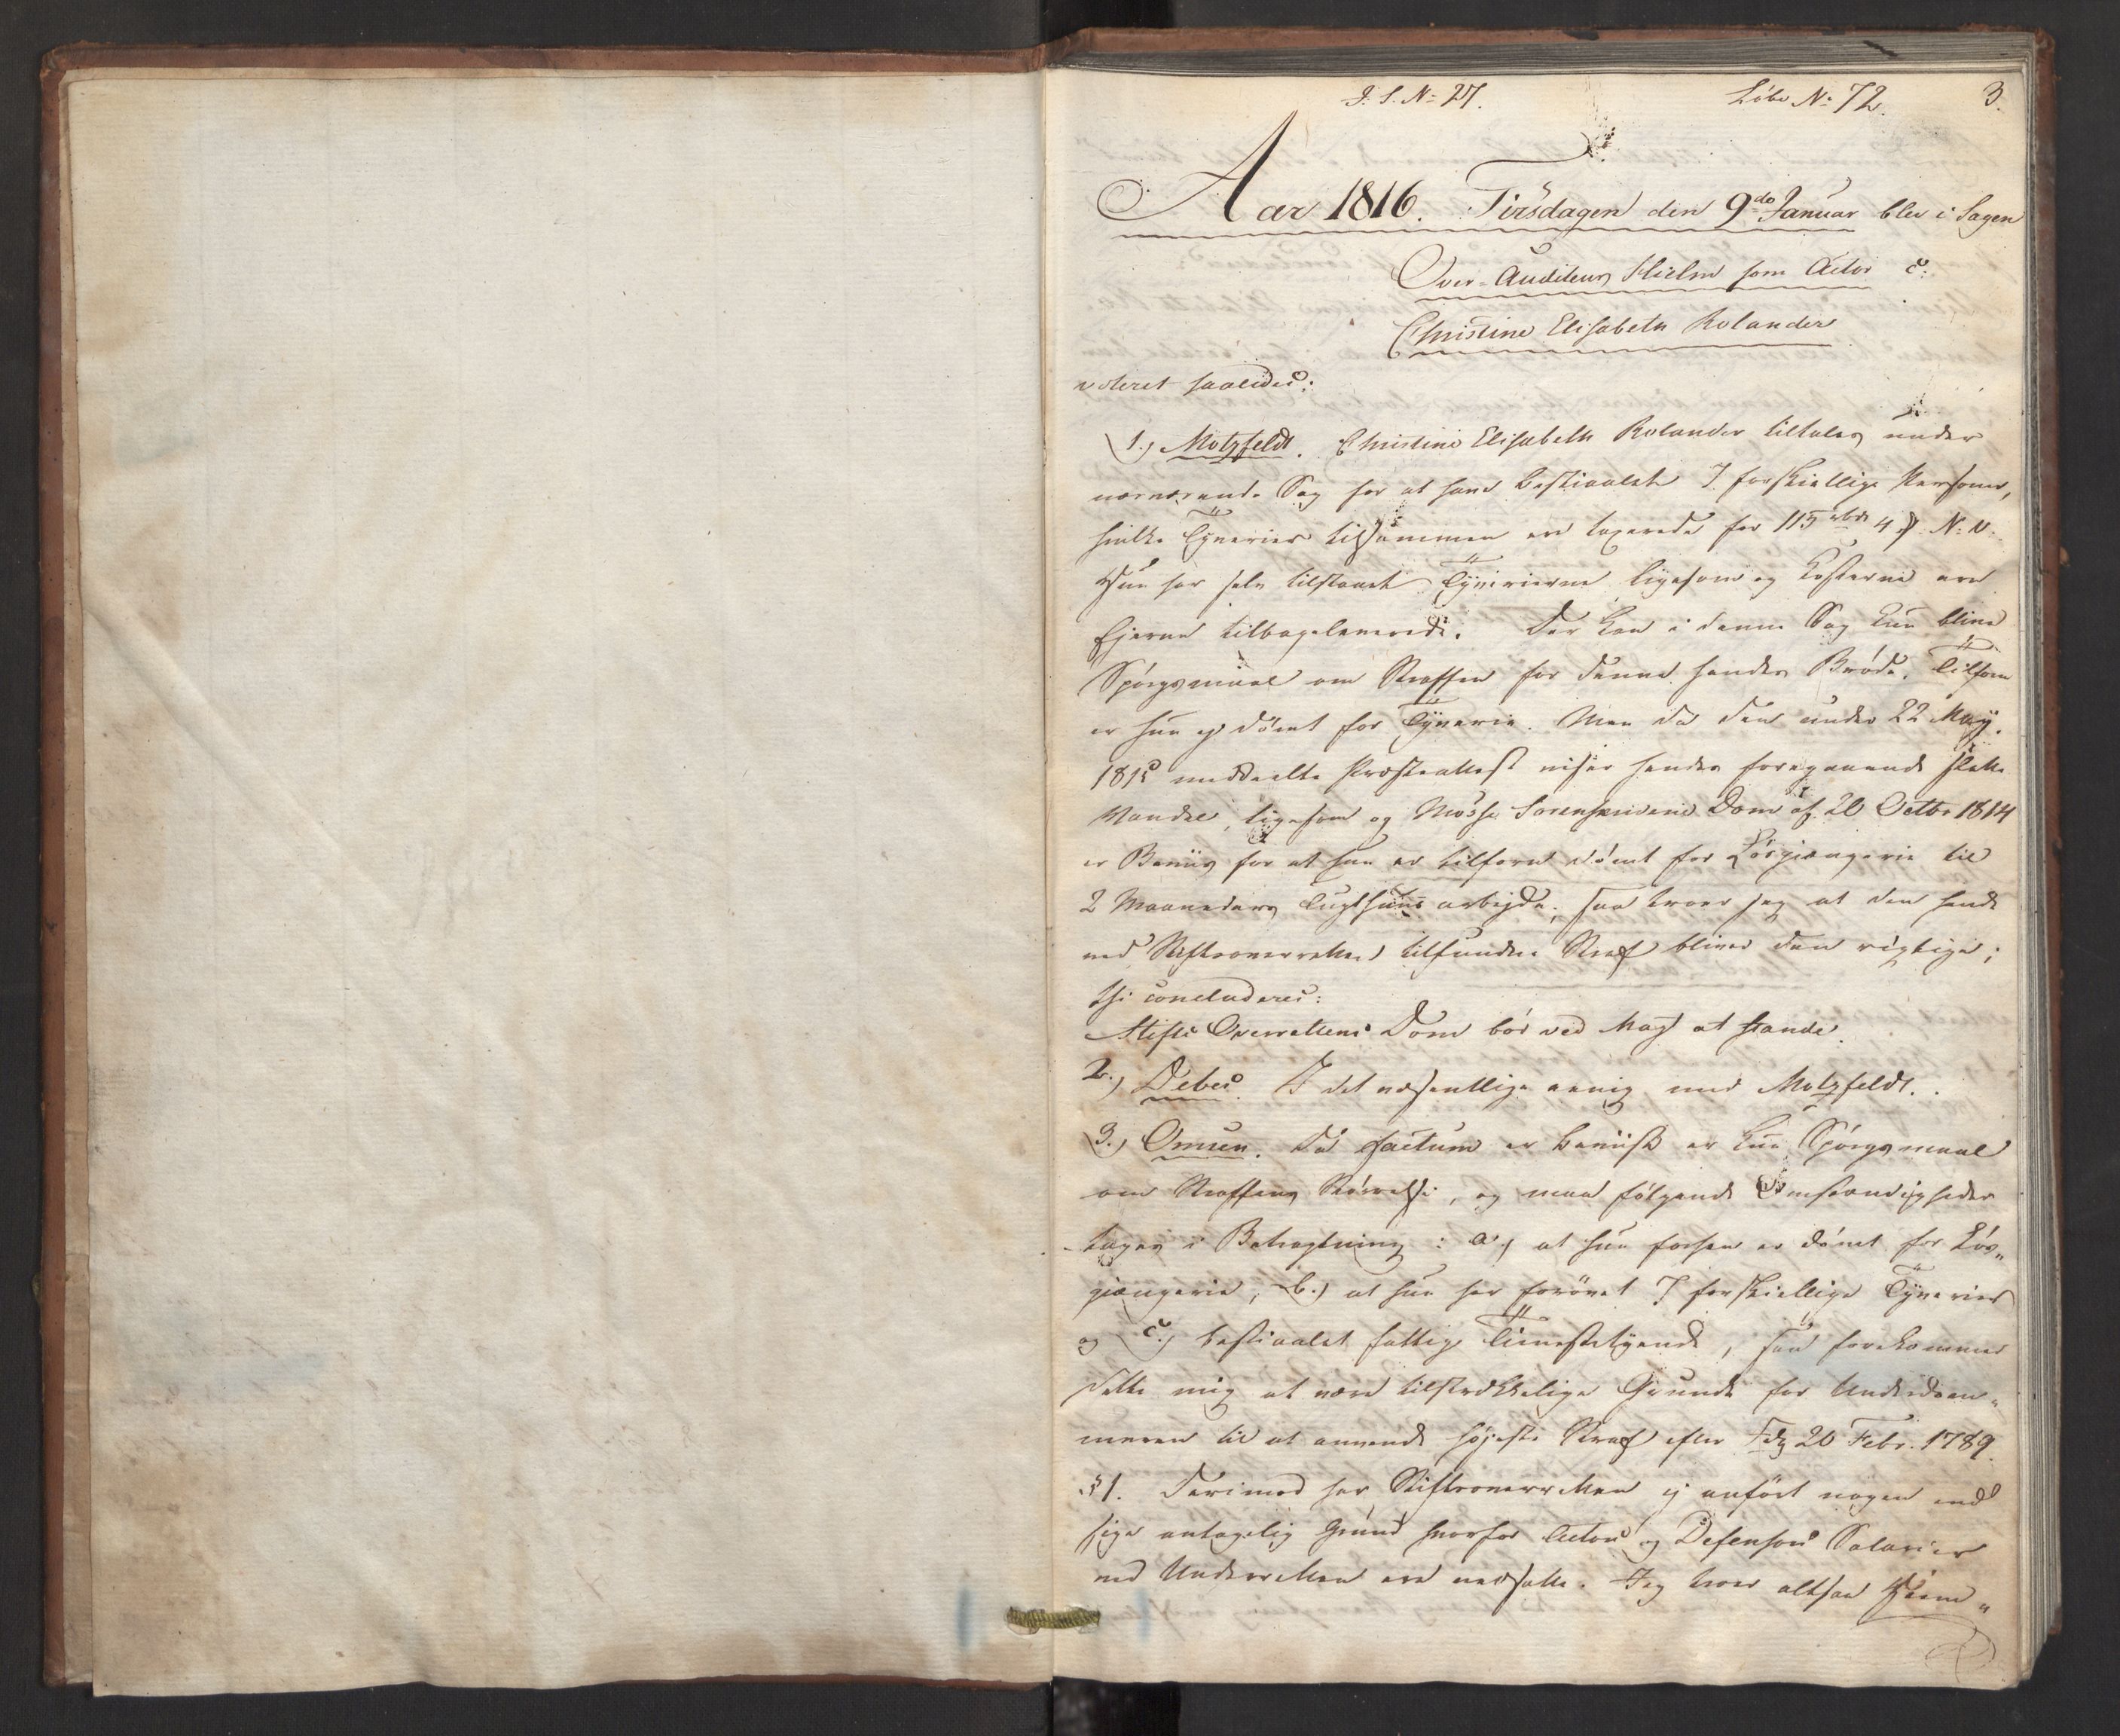 J: S. No: 27. Löbe No: 72. 3.
Aar 1816. Tirsdagen den 9de Januar blev i Sagen
Over-Auditeur Hielm som Actor c:
Christine Elisabeth Rolander
voteret saaledes:
1.) Motzfeldt. Christine Elisabeth Rolander tiltales under
nærværende Sag for at have bestiaalet 7 forskiellige Personer,
hvilke Tyverier tilsammen ere taxerede for 115 rbd 4 s N: V:
Hun har selv tilstaaet Tyverierne ligesom og Kosterne ere
Ejerne tilbageleverede. Der kan i denne Sag kun blive
Spörgsmaal om Straffen for denne hendes Bröde. Tilforn
er hun ej dömt for Tyverie. Men da den under 22 May
1815 meddeelte Præsteattest viser hendes foregaaende slette
Vandel, ligesom og Mosse Sorenskriveries Dom af 20 Octbr 1814
er Beviis for at hun er tilforn dömt for Lösgiængerie til
2 Maaneders Tugthuus arbejde; saa troer jeg at den hende
ved Stiftsoverretten tilfundne Straf bliver den rigtige;
thi concluderes:
Stifts Overrettens Dom bör ved Magt at stande.
2.) Debes. I det væsentlige eenig med Motzfeldt.
3.) Omsen. Da factum er beviist er kun Spörgsmaal
om Straffens Störrelse, og maa fölgende Omstændigheder
tages i Betragtning: a.) at hun forhen er dömt for Lös„
giængerie, b.) at hun har forövet 7 forskiellige Tyverier
og c.) bestiaalet fattige Tienestetyende, saa forekommer
dette mig at være tilstrækkelige Grunde for Underdom„
meren til at anvende höjeste Straf efter Fdg 20 Febr. 1789.
§ 1. Derimod har Stiftsoverretten ej anfört nogen end
sige antagelig Grund hvorfor Actors og Defensors Salarier
ved Underretten ere nedsatte. Jeg troer altsaa Hiem„